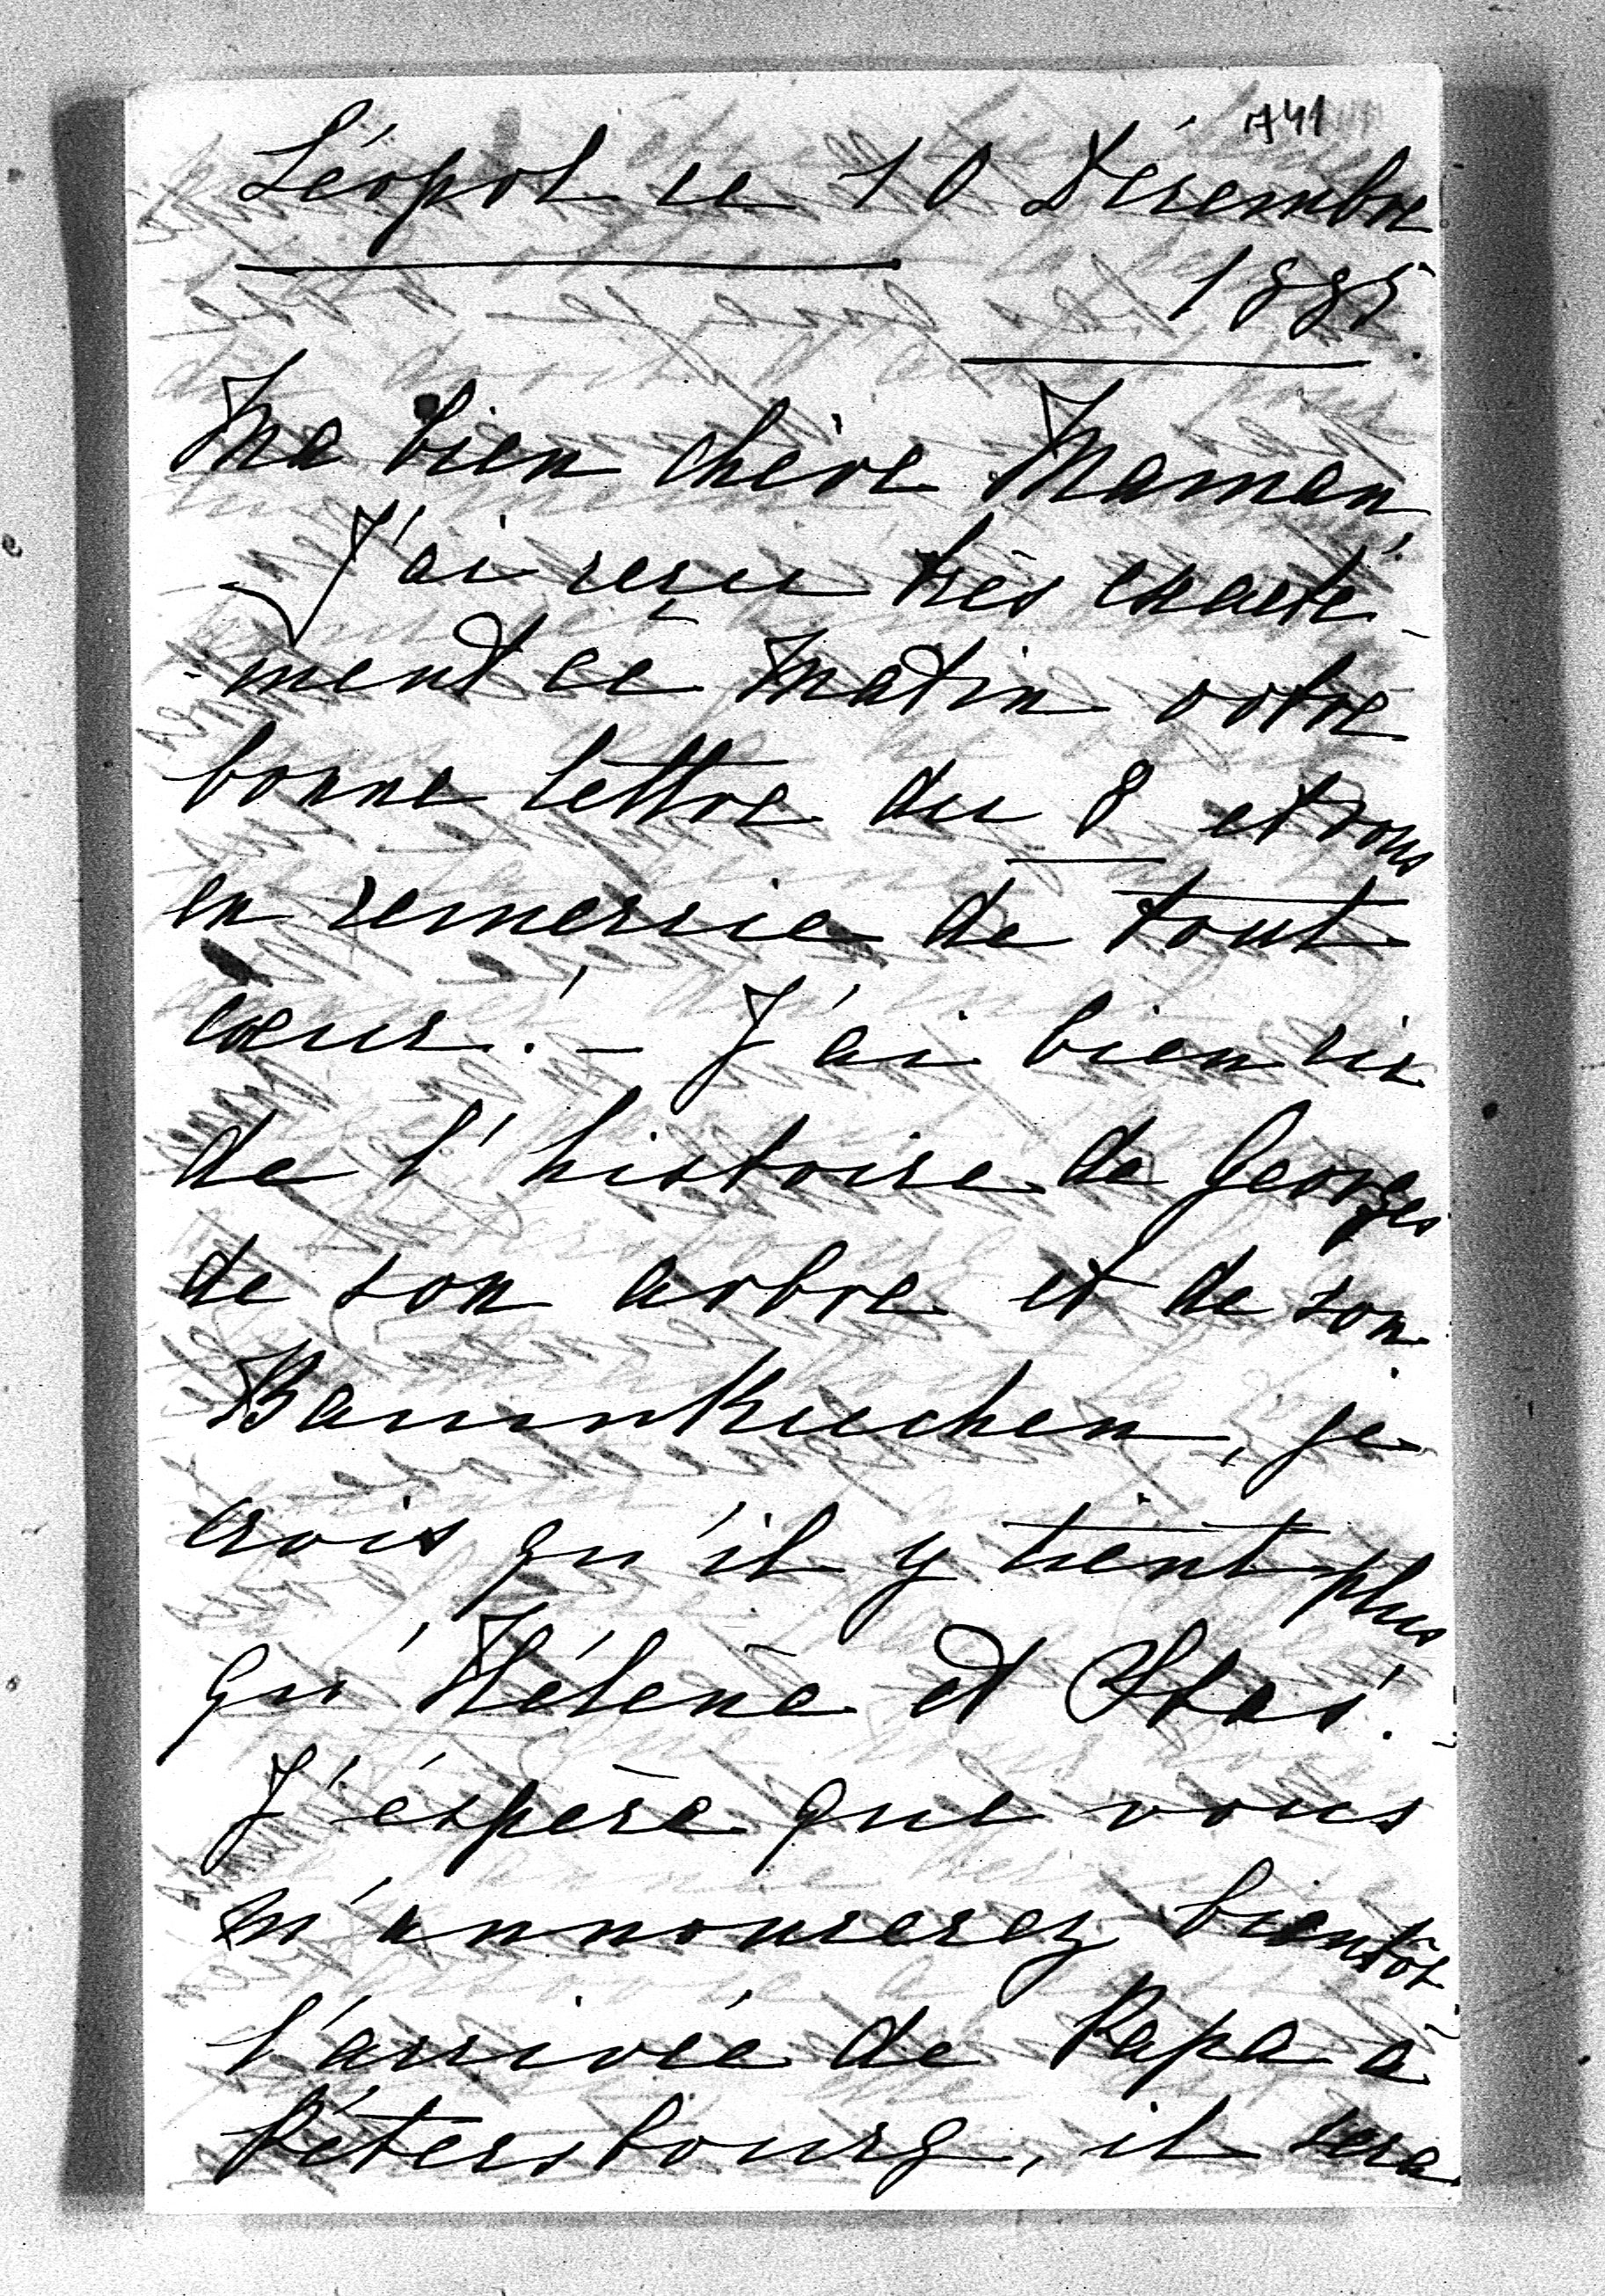 741
Léopol ce 10 Décembre
1885.
Ma bien chère Maman,
J'ai reçu très exacte-
-ment ce matin votre
bonne lettre du 8 et vous
en remercie de tout
cœur! – J'ai bien ri
de l'histoire de Georges
de son arbre et de son
Baumkuchen, je
crois qu'il y tient plus
qu'Hélène et Stas!
J'éspère que vous
m'annoncerez bientôt
l'arrivée de Papa à
Pétersbourg, il sera